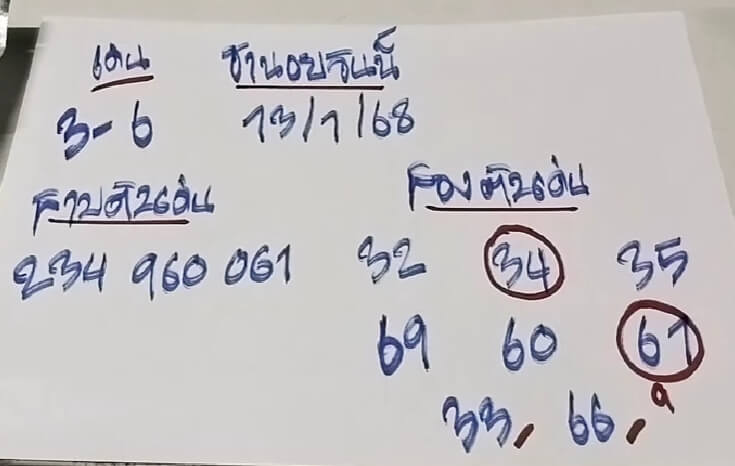 เด่น ฮานอยวันนี้
3-6 13/1/68
สามตัวเด่น สองตัวเด่น
234 960 061 32 34 35
69 60 61
33, 66,